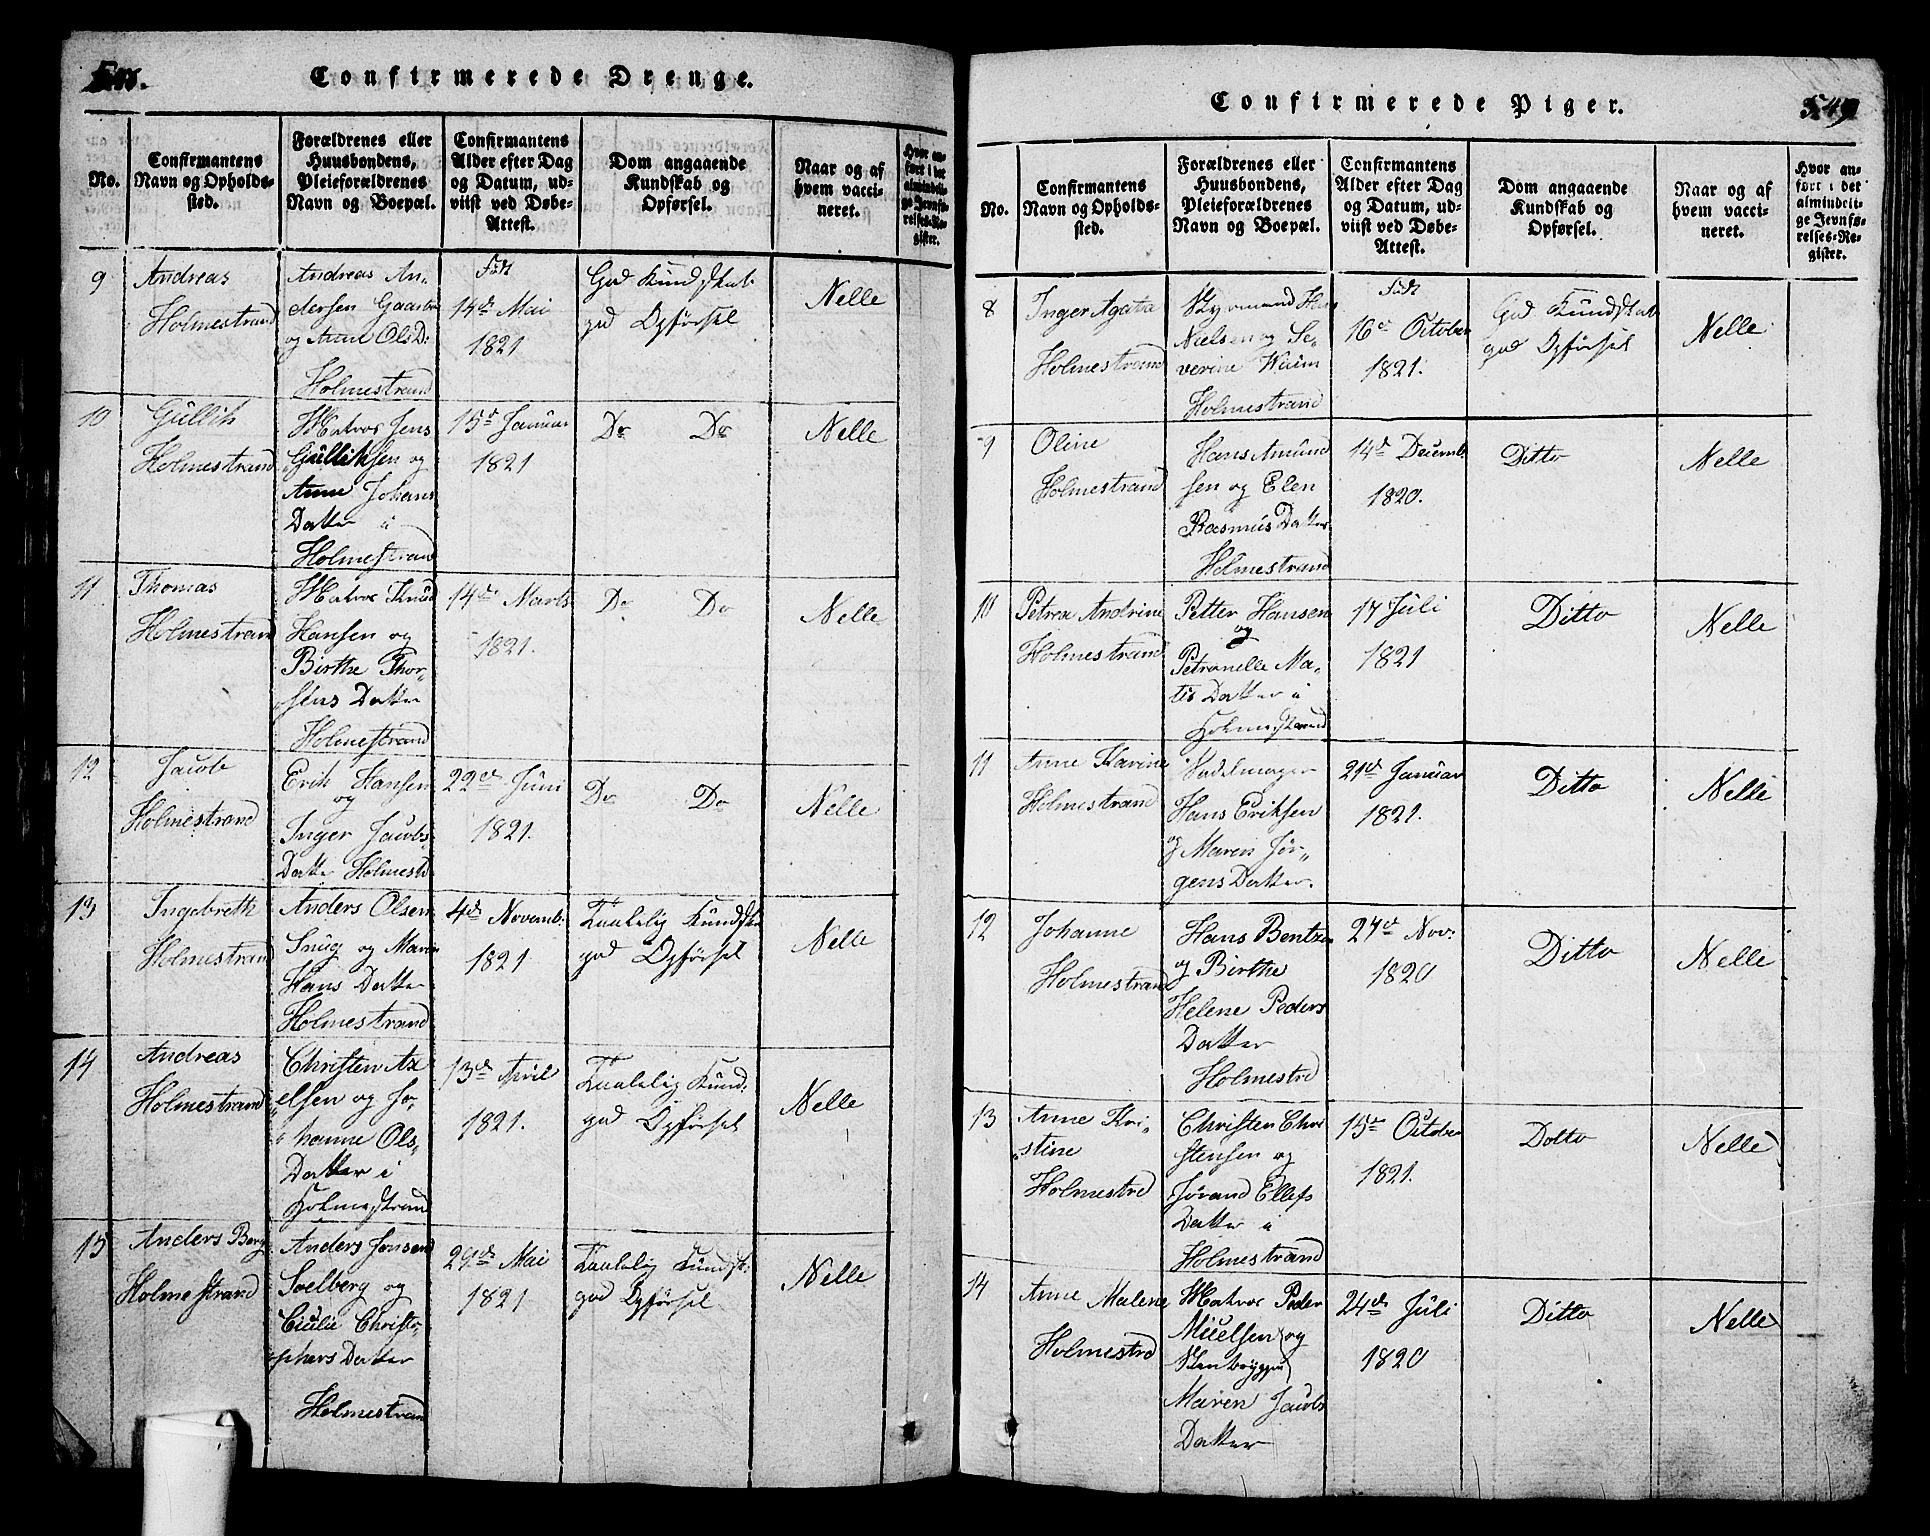 Confirmerede Drenge.
No.
Confirmantens
Navn og Opholds-
sted.
Forældrenes eller
Huusbondens,
Pleieforældrenes
Navn og Boepæl.
Confirmantens
Alder efter Dag
og Datum, ud-
viist ved Døbe-
Attest.
Dom angaaende
Kundskab og
Opførsel.
Naar og af
hvem vacci-
neret.
Hvor an-
ført i det
almindeli-
ge Jevnfø-
relses-Re-
gister.
9
Andreas
Holmestrand
Andreas An-
dersen
og Anne Ols D:
Holmestrand
Født
14de Mai
1821
God Kundskab
god Opførsel
Nelle
10
Gullik
Holmestrand
Matros Jens
Gulliksen og
Anne Johans
Datter i
Holmestrand
15de Januar
1821
Do Do
Nelle
11
Thomas
Holmestrand
Matros Knud
Hansen og
Birthe Thor-
sens Datter
Holmestrand
14de Marts
1821.
Do Do
Nelle
12
Jacob
Holmestrand
Erik Hansen
og
Inger Jacobs
Datter Holmestd
22de Juni
1821.
Do Do
Nelle
13
Ingebreth
Holmestrand
Anders Olsen
Snug og Maren
Hans Datter
Holmestrand
4de Novemb:
1821
Taalelig Kundsk
god Opførsel
Nelle
14
Andreas
Holmestrand
Christen Ax
elsen og Jo-
hanne Ols-
Datter i
Holmestrand
13de April
1821.
Taalelig Kund:
god Opførsel
Nelle
15
Anders Berg
Holmestrand
Anders Jensen
Solberg og
Cicilie Christo-
phers Datter
Holmestrand
29de Mai
1821
Taalelig Kundsk:
god Opførsel
Nelle
Confirmerede Piger.
549
No.
Confirmantens
Navn og Opholds-
sted.
Forældrenes eller
Huusbondens,
Pleieforældrenes
Navn og Boepæl.
Confirmantens
Alder efter Dag
og Datum, ud-
viist ved Døbe-
Attest.
Dom angaaende
Kundskab og
Opførsel.
Naar og af
hvem vacci-
neret.
Hvor an-
ført i det
almindeli-
ge Jevnfø-
relses-Re-
gister.
8
Inger Agata
Holmestrand
Styrmand Hans
Nielsen og Se-
verine
Holmestrand
Født
16de October
1821.
God Kundskab
god Opførsel
Nelle
9
Oline
Holmestrand
Hans Amund
sen og Elen
Rasmus Datter
Holmestrand
14de Decemb.
1820.
Ditto
Nelle
10
Petrea Andrine
Holmestrand
Petter Hansen
og
Petronelle Ma-
tis Datter i
Holmestrand
17 Juli
1821
Ditto
Nelle
11
Anne Karine
Holmestrand
Sadelmager
Hans Eriksen
og Maren Jør-
gens Datter.
21de Januar
1821.
Ditto
Nelle
12
Johanne
Holmestrand
Hans Bentzen
og Birthe
Helene Peders
Datter
Holmestrd
27de Nov:
1820
Ditto
Nelle
13
Anne Kri-
stine
Holmestrd
Christen Chri
stensen og
Jørand Ellefs
Datter i
Holmestrand
15de October
1821.
Dotto
Nelle
14
Anne Malene
Holmestrd
Matros Peder
Micelsen og
Stenbryggen
Maren Jacobs
Datter
24de Juli
1820
Ditto
Nelle